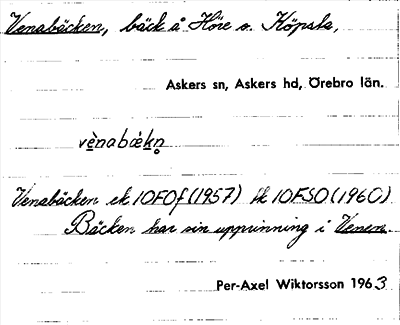 Venabäcken, bäck å Höre o. Köpsta,
Askers sn, Askers hd, Örebro län.
vènabǽkn̥
Venabäcken ek 10F0f (1957) fk 10FSO (1960)
Bäcken har sin upprinning i Venen.
Per-Axel Wiktorsson 1963